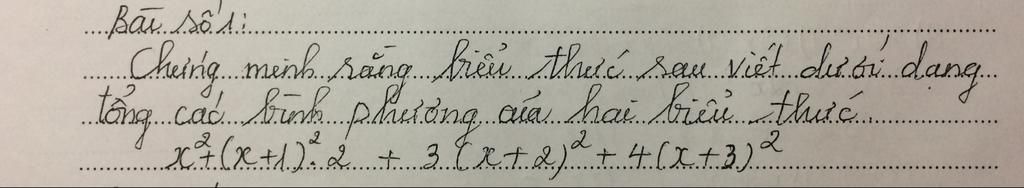 Bài số 1:
Chứng minh rằng biểu thức sau viết dưới dạng
tổng các bình phương của hai biểu thức.
x²+(x+1)².2 + 3(x+2)²+4(x+3)²